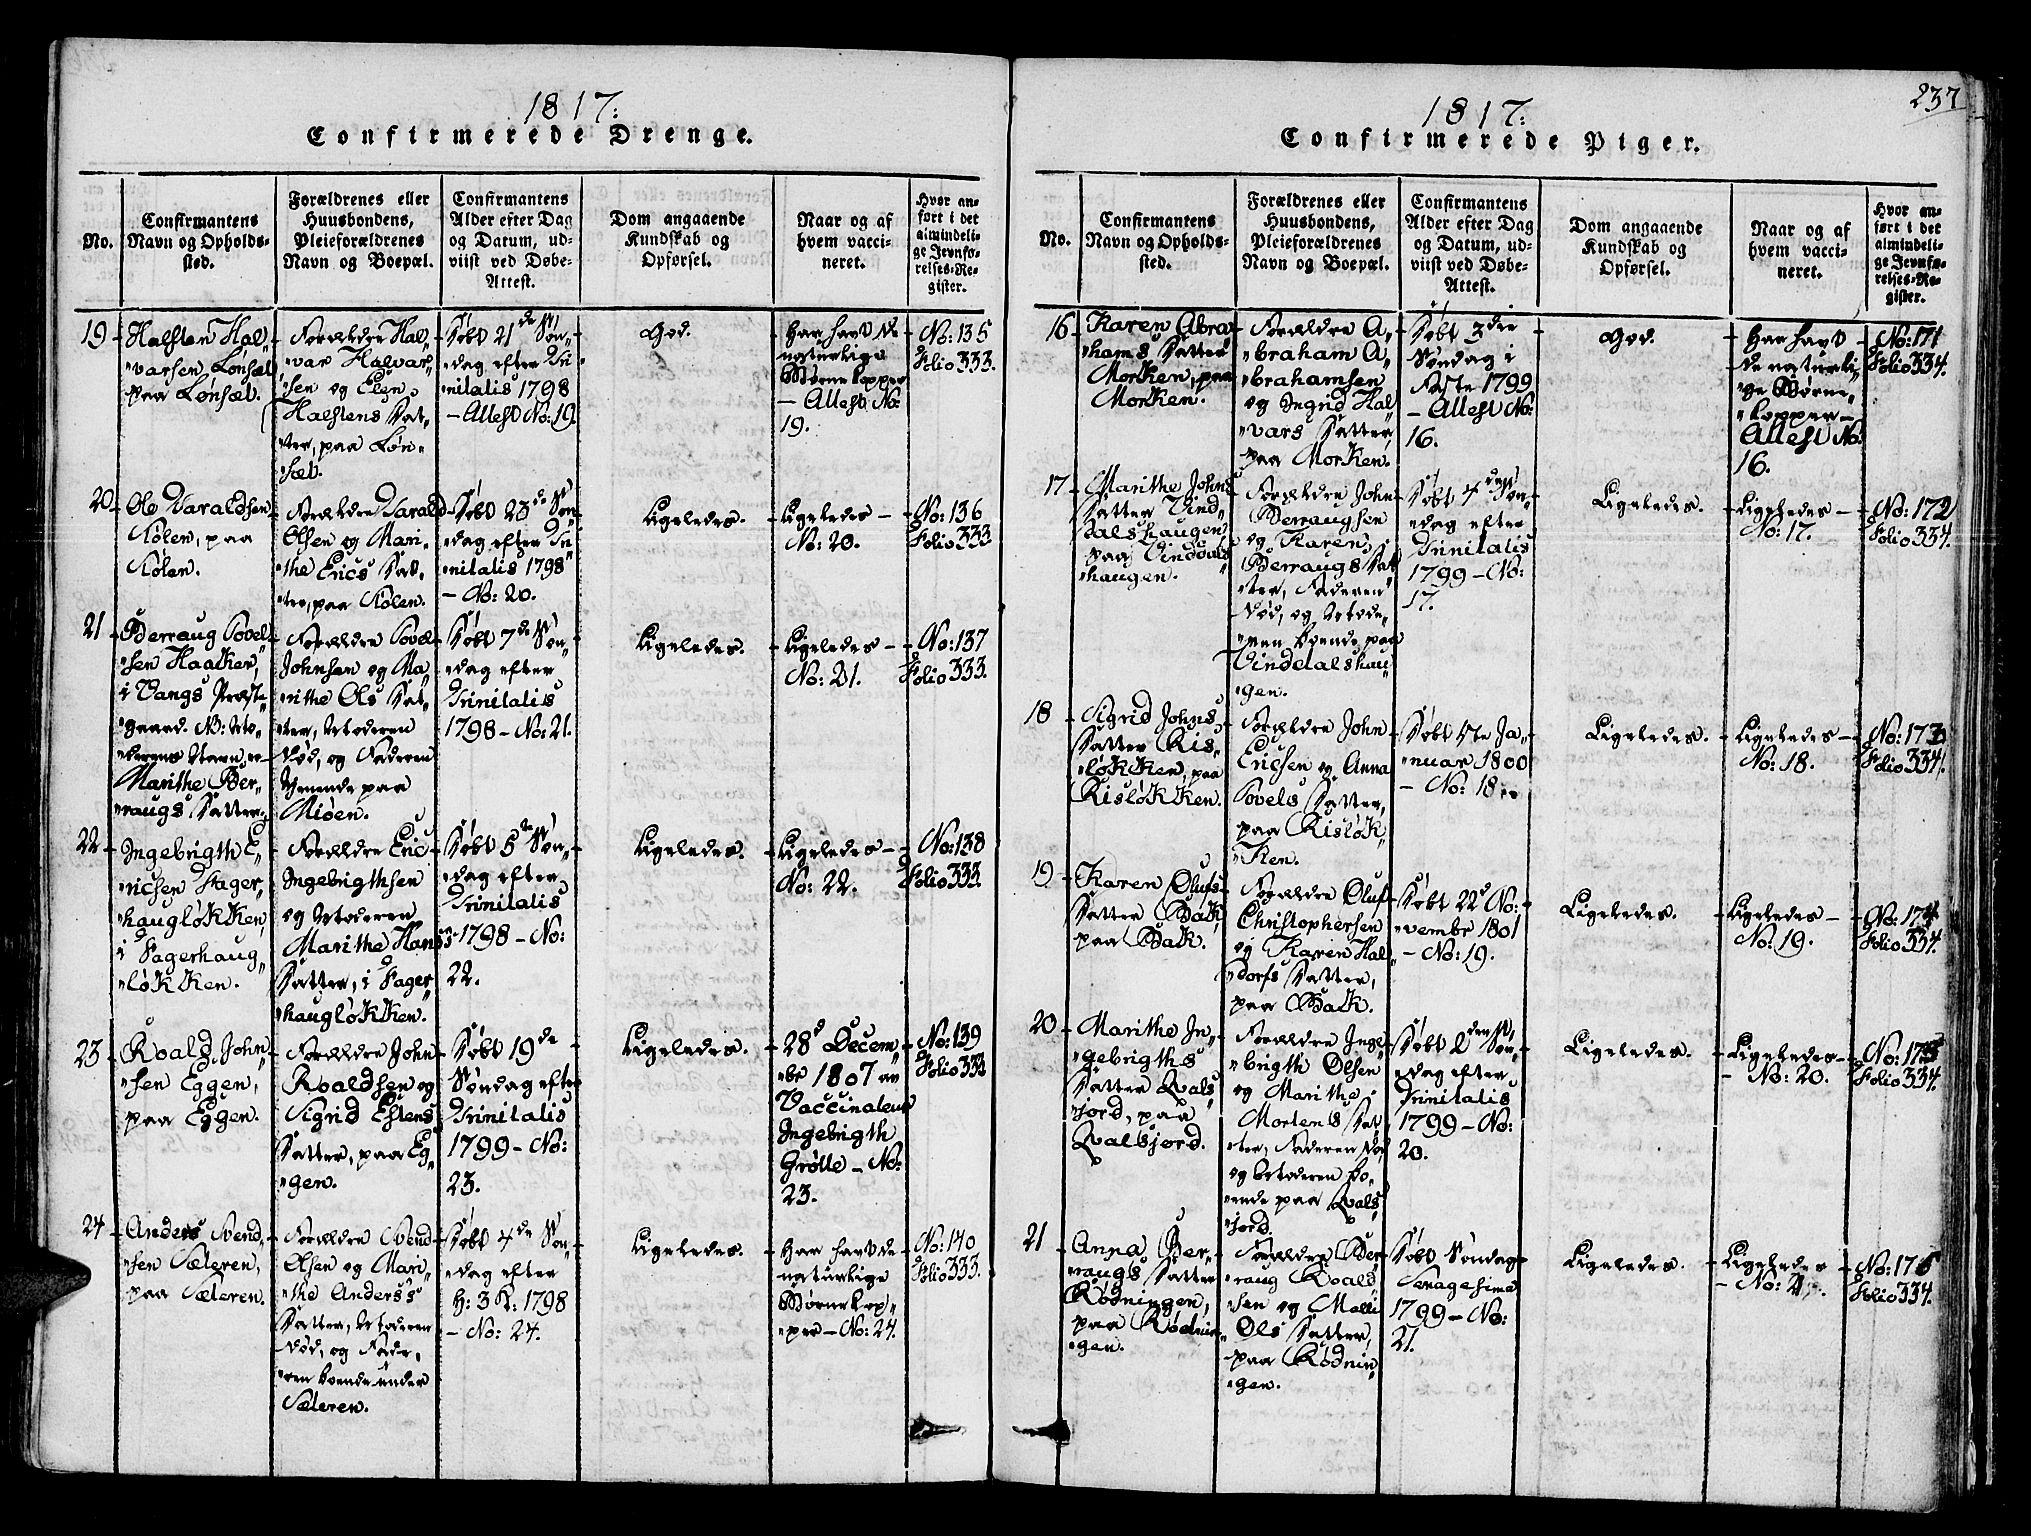 237
1817:
Confirmerede Drenge.
No.
Confirmantens
Navn og Opholds-
sted.
Forældrenes eller
Huusbondens,
Pleieforældrenes
Navn og Boepæl.
Confirmantens
Alder efter Dag
og Datum, ud-
viist ved Døbe-
Attest.
Dom angaaende
Kundskab og
Opførsel.
Naar og af
hvem vacci-
neret.
Hvor an-
ført i det
almindeli-
ge Jevnfø-
relses-Re-
gister.
19
Halsten Hal„
„varsen Lønset
paa Lønset.
Forældre Hal„
„var Halvar„
„sen og Elen
Halstens Dat„
„ter, paa Løn„
„set.
Døbt 21de Søn„
„dag efter Tri„
„nitatis 1798
– Attest No: 19.
God.
Har havt de
naturlige
Børnekopper
– Attest No:
19.
No: 135
Folio 333.
20
Ole Haraldsen
Kølen, paa
Kølen.
Forældre Harald
Olsen og Mari„
„the Erics Dat„
„ter, paa Kølen.
Døbt 23de Søn„
„dag efter Tri„
„nitatis 1798
– No: 20.
Ligeledes.
Ligeledes –
No: 20.
No: 136
Folio 333
21
Berraug Povel„
„sen Haaker,
i Vangs Præste„
„gaard. NB: Mo„
„derens Navn er
Marithe Ber„
„raugs Datter.
Forældre Povel
Johnsen og Ma„
„rithe Ols Dat„
„ter, Moderen
død, og Faderen
tienende paa
Miøen.
Døbt 7de Søn„
„dag efter
Trinitatis
1798 – No: 21.
Ligeledes.
Ligeledes –
No: 21.
No: 137
Folio 333.
22
Ingebrigth E„
„ricsen Fager„
„haugløkken,
i Fagerhaug„
„løkken.
Forældre Eric
Ingebrigthsen
og Moderen
Marithe Hans
Datter, i Fager„
„haugløkken.
Døbt 5te Søn„
„dag efter
Trinitatis
1798 – No:
22.
Ligeledes.
Ligeledes –
No: 22.
No: 138
Folio 333.
23
Roald John„
„sen Eggen,
paa Eggen.
Forældre John
Roaldsen og
Sigrid Estens
Datter, paa Eg„
„gen.
Døbt 19de
Søndag efter
Trinitatis
1799 – No:
23.
Ligeledes.
28d Decem„
„br 1807 av
Vaccinateur
Ingebrigth
Grølle – No:
23.
No: 139
Folio 333
24
Anders Svend„
„sen Sæteren,
paa Sæteren.
Forældre Svend
Olsen og Mari„
„the Anders
Datter, Moderen
død, og Fade„
„ren boende under
Sæteren.
Døbt 4de Søn„
„dag efter
H: 3 K: 1798
– No: 24.
Ligeledes.
Har havt de
naturlige
Børnekop„
„per – No: 24.
No: 140
Folio 333.
1817:
Confirmerede Piger.
No.
Confirmantens
Navn og Opholds-
sted.
Forældrenes eller
Huusbondens,
Pleieforældrenes
Navn og Boepæl.
Confirmantens
Alder efter Dag
og Datum, ud-
viist ved Døbe-
Attest.
Dom angaaende
Kundskab og
Opførsel.
Naar og af
hvem vacci-
neret.
Hvor an-
ført i det
almindeli-
ge Jevnfø-
relses-Re-
gister.
16
Karen Abra„
„hams Datter
Morken, paa
Morken.
Forældre A„
„braham A„
„brahamsen
og Ingrid Hal„
„vars Datter
paa Morken.
Døbt 3die
Søndag i
Faste 1799
– Attest No:
16.
God.
Har havt
de naturli„
„ge Børne„
„kopper –
Attest No:
16.
No: 171
Folio 334.
17
Marithe Johns
Datter Vind„
„dalshaugen,
paa Vinddals„
„haugen.
Forældre John
Berraugsen
og Karen
Berraugs Dat„
„ter, Faderen
død, og Mode„
„ren boende paa
Vinddalshau„
„gen.
Døbt 4de Søn„
„dag efter
Trinitatis
1799 – No:
17.
Ligeledes.
Ligeledes –
No: 17.
No: 172
Folio 334.
18
Sigrid Johns
Datter Ris„
„løkken, paa
Risløkken.
Forældre John
Ericsen og Anna
Povels Datter,
paa Risløk„
„ken.
Døbt 5te Ja„
„nuar 1800
– No: 18.
Ligeledes.
Ligeledes –
No: 18.
No: 173
Folio 334.
19
Karen Olufs
Datter Bak,
paa Bak.
Forældre Oluf
Christophersen
og Karen Hal„
„dorfs Datter,
paa Bak.
Døbt 22d No„
„vembr 1801
– No: 19.
Ligeledes.
Ligeledes –
No: 19.
No: 174
Folio 334.
20
Marithe In„
„gebrigths
Datter Qvals„
„jord, paa
Qvalsjord.
Forældre Inge„
„brigth Olsen
og Marithe
Mortens Dat„
„ter, Faderen død
og Moderen bo„
„ende paa Qvals„
„jord.
Døbt 2den Søn„
„dag efter
Trinitatis
1799 – No:
20.
Ligeledes.
Ligeledes –
– No: 20.
No: 175
Folio 334.
21
Anna Ber„
„raugs Datter
Rødningen,
paa Rødnin„
„gen.
Forældre Ber„
„raug Roald„
„sen og Malli
Ols Datter,
paa Rødnin„
„gen.
Døbt Søndag
Sexagesima
1799 – No:
21.
Ligeledes.
Ligeledes
– No: 21.
No: 176
Folio 334.